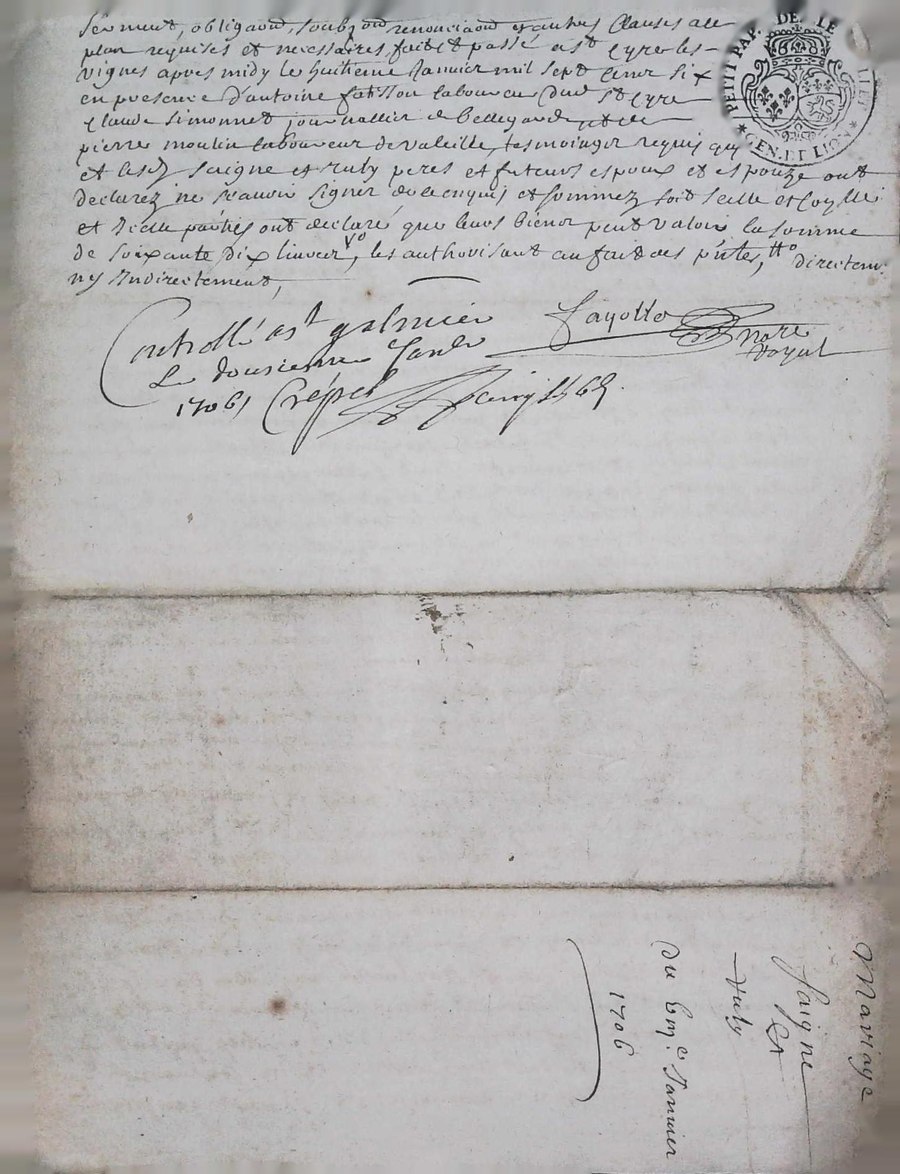 serment, obligaon, soubz on renonciaon et autres Clauses a ce
plan requises et necessaires, fait et passé a st Cyre les
vignes apres midy le huitieme Janvier mil sept cent six
en presence d'antoine laboureur dud st Cyre
Claude simonnet journallier de bellegarde et de
pierre moulin laboureur de valeille, tesmoingz requis qui
et lesd saigne et ruby peres et futeurs espoux et espouze ont
declarez ne scauoir signer de ce enquis et sommez soit scellé et
et Icelle parties ont declaré que leurs biens peut valoir la somme
de soixante dix liures, les authorisant au fait des pntes, directem
ny Indirectement,
PETIT PAP. DE
GEN. ET LION
Controllé a st galmier
Le dousieme Janvr
1706 Crépet
fayolle
nore
royal
Mariage
saigne
et
ruby
du 8me Janvier
1706